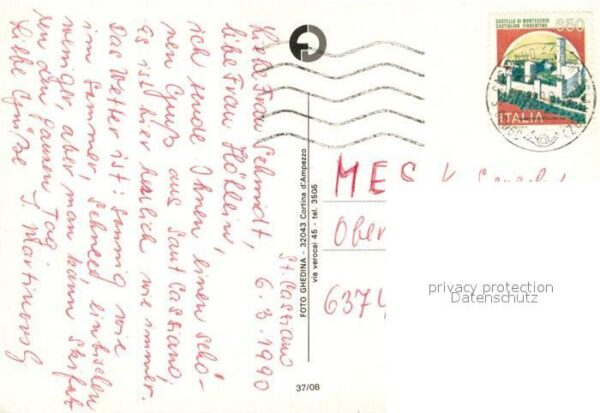 St. Cassiano
6.3.1990
Liebe Frau Schmidt,
liebe Frau Höllein,
ich sende Ihnen einen schö-
nen Gruß aus Sant Cassiano,
Es ist hier herrlich wie immer.
Das Wetter ist: sonnig wie
im Sommer, Schnee ein bißchen
weniger, aber man kann
den ganzen Tag
Liebe Grüße
37/08
FOTO GHEDINA - 32043 Cortina d'Ampezzo
via verocai 45 - tel. 3505
CASTELLO DI MONTECCHIO
CASTIGLION FIORENTINO
850
ITALIA
MES
Ober
6374
privacy protection
Datenschutz